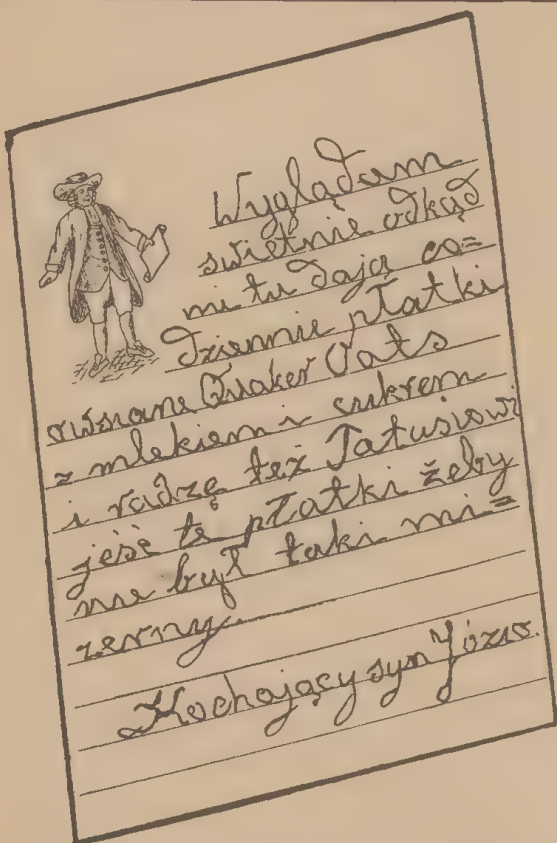 Wyglądam
świetnie odkąd
mi tu dają co=
dziennie płatki
owsiane Quaker Oats
z mlekiem i cukrem
i radzę też Tatusiowi
jeść te płatki żeby
nie był taki mi=
zerny.
Kochający syn Józio.